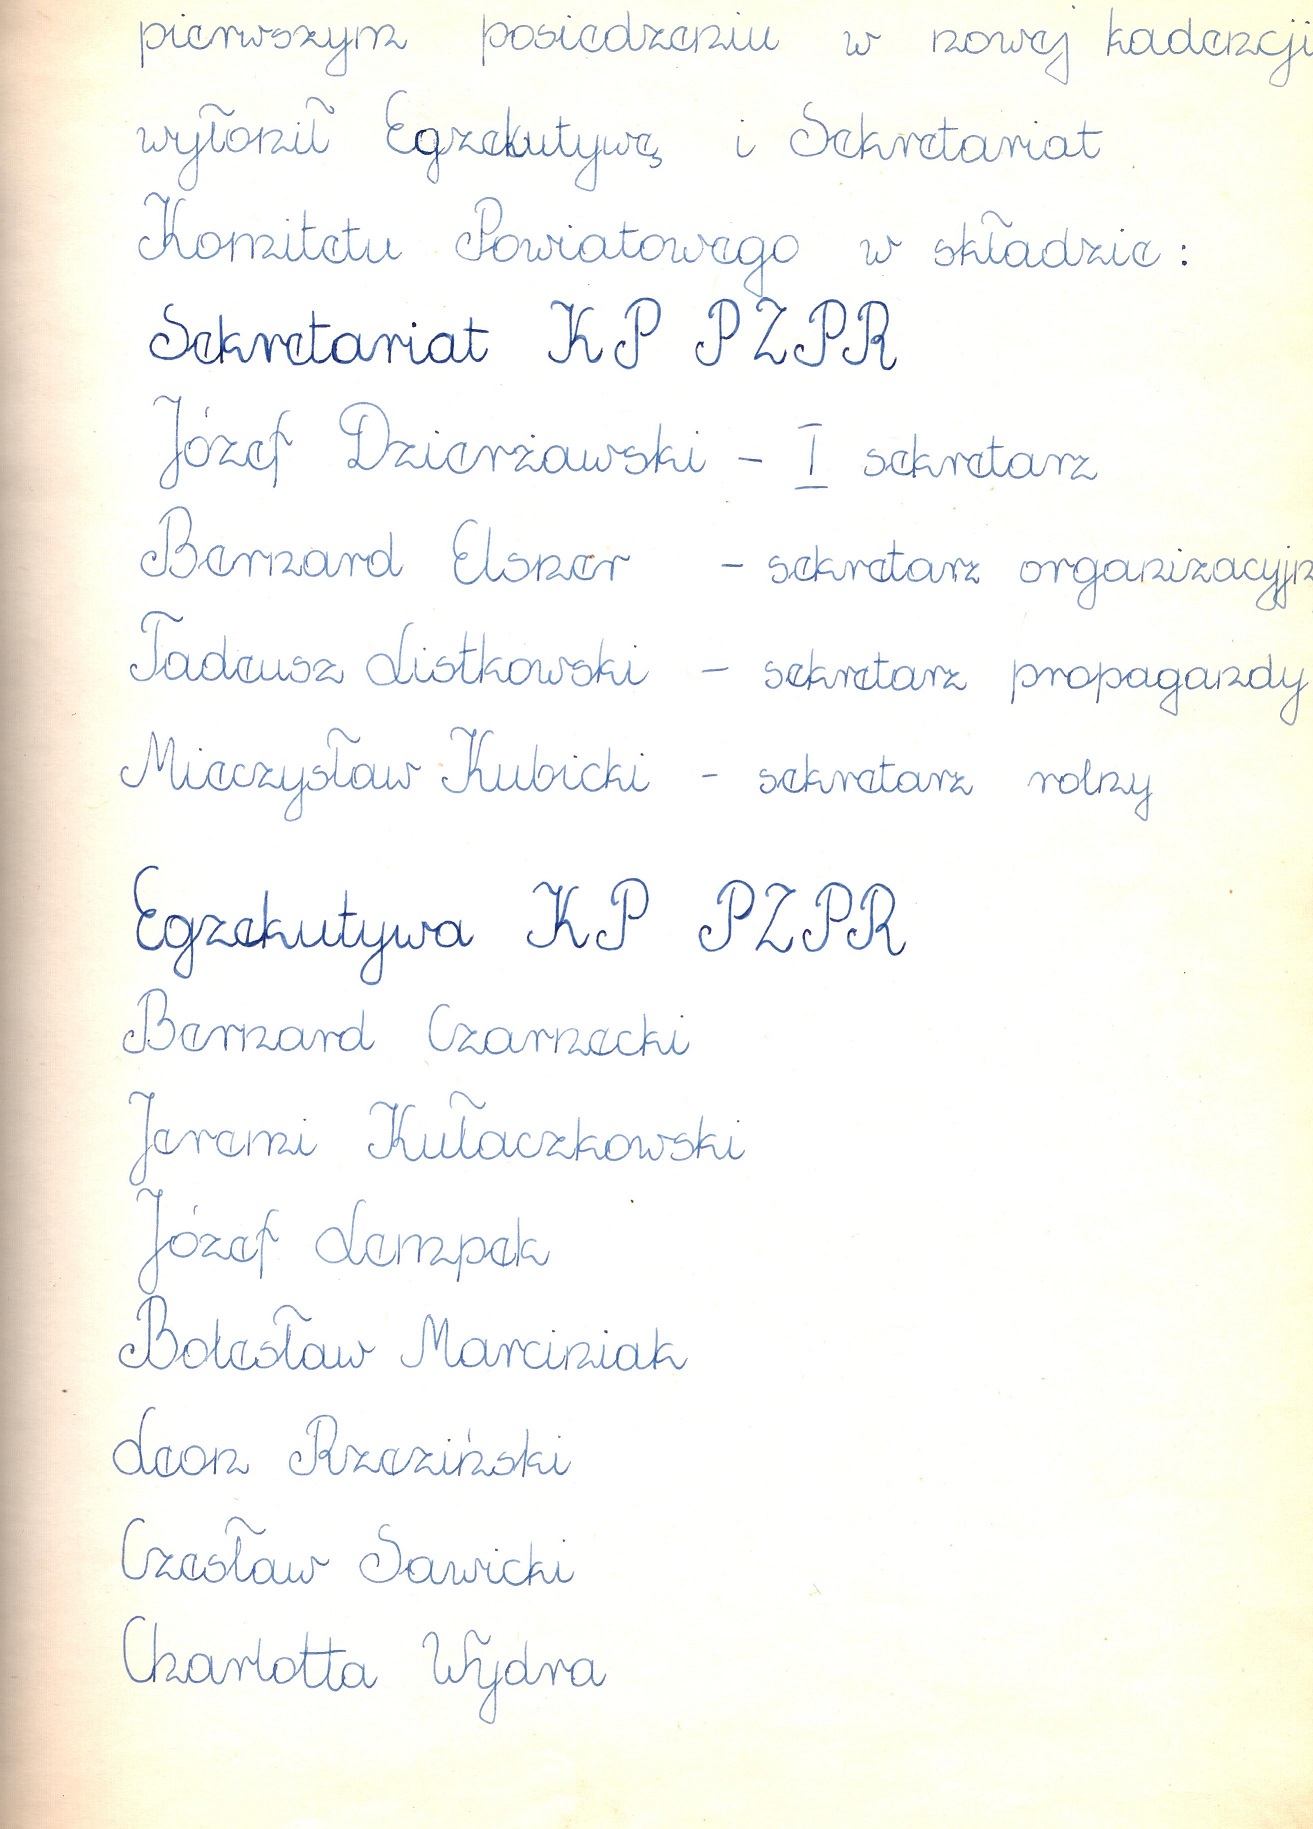 pierwszym posiedzeniu w nowej kadencji
wyłonił Egzekutywę i Sekretariat
Komitetu Powiatowego w składzie:
Sekretariat KP PZPR
Józef Dzierżawski - I sekretarz
Bernard Elsner - sekretarz organizacyjn
Tadeusz Listkowski - sekretarz propagandy
Mieczysław Kubicki - sekretarz rolny
Egzekutywa KP PZPR
Bernard Czarnecki
Jeremi Kułaczkowski
Józef Lempek
Bolesław Marciniak
Leon Rzeziński
Czesław Sawicki
Charlotta Wydra